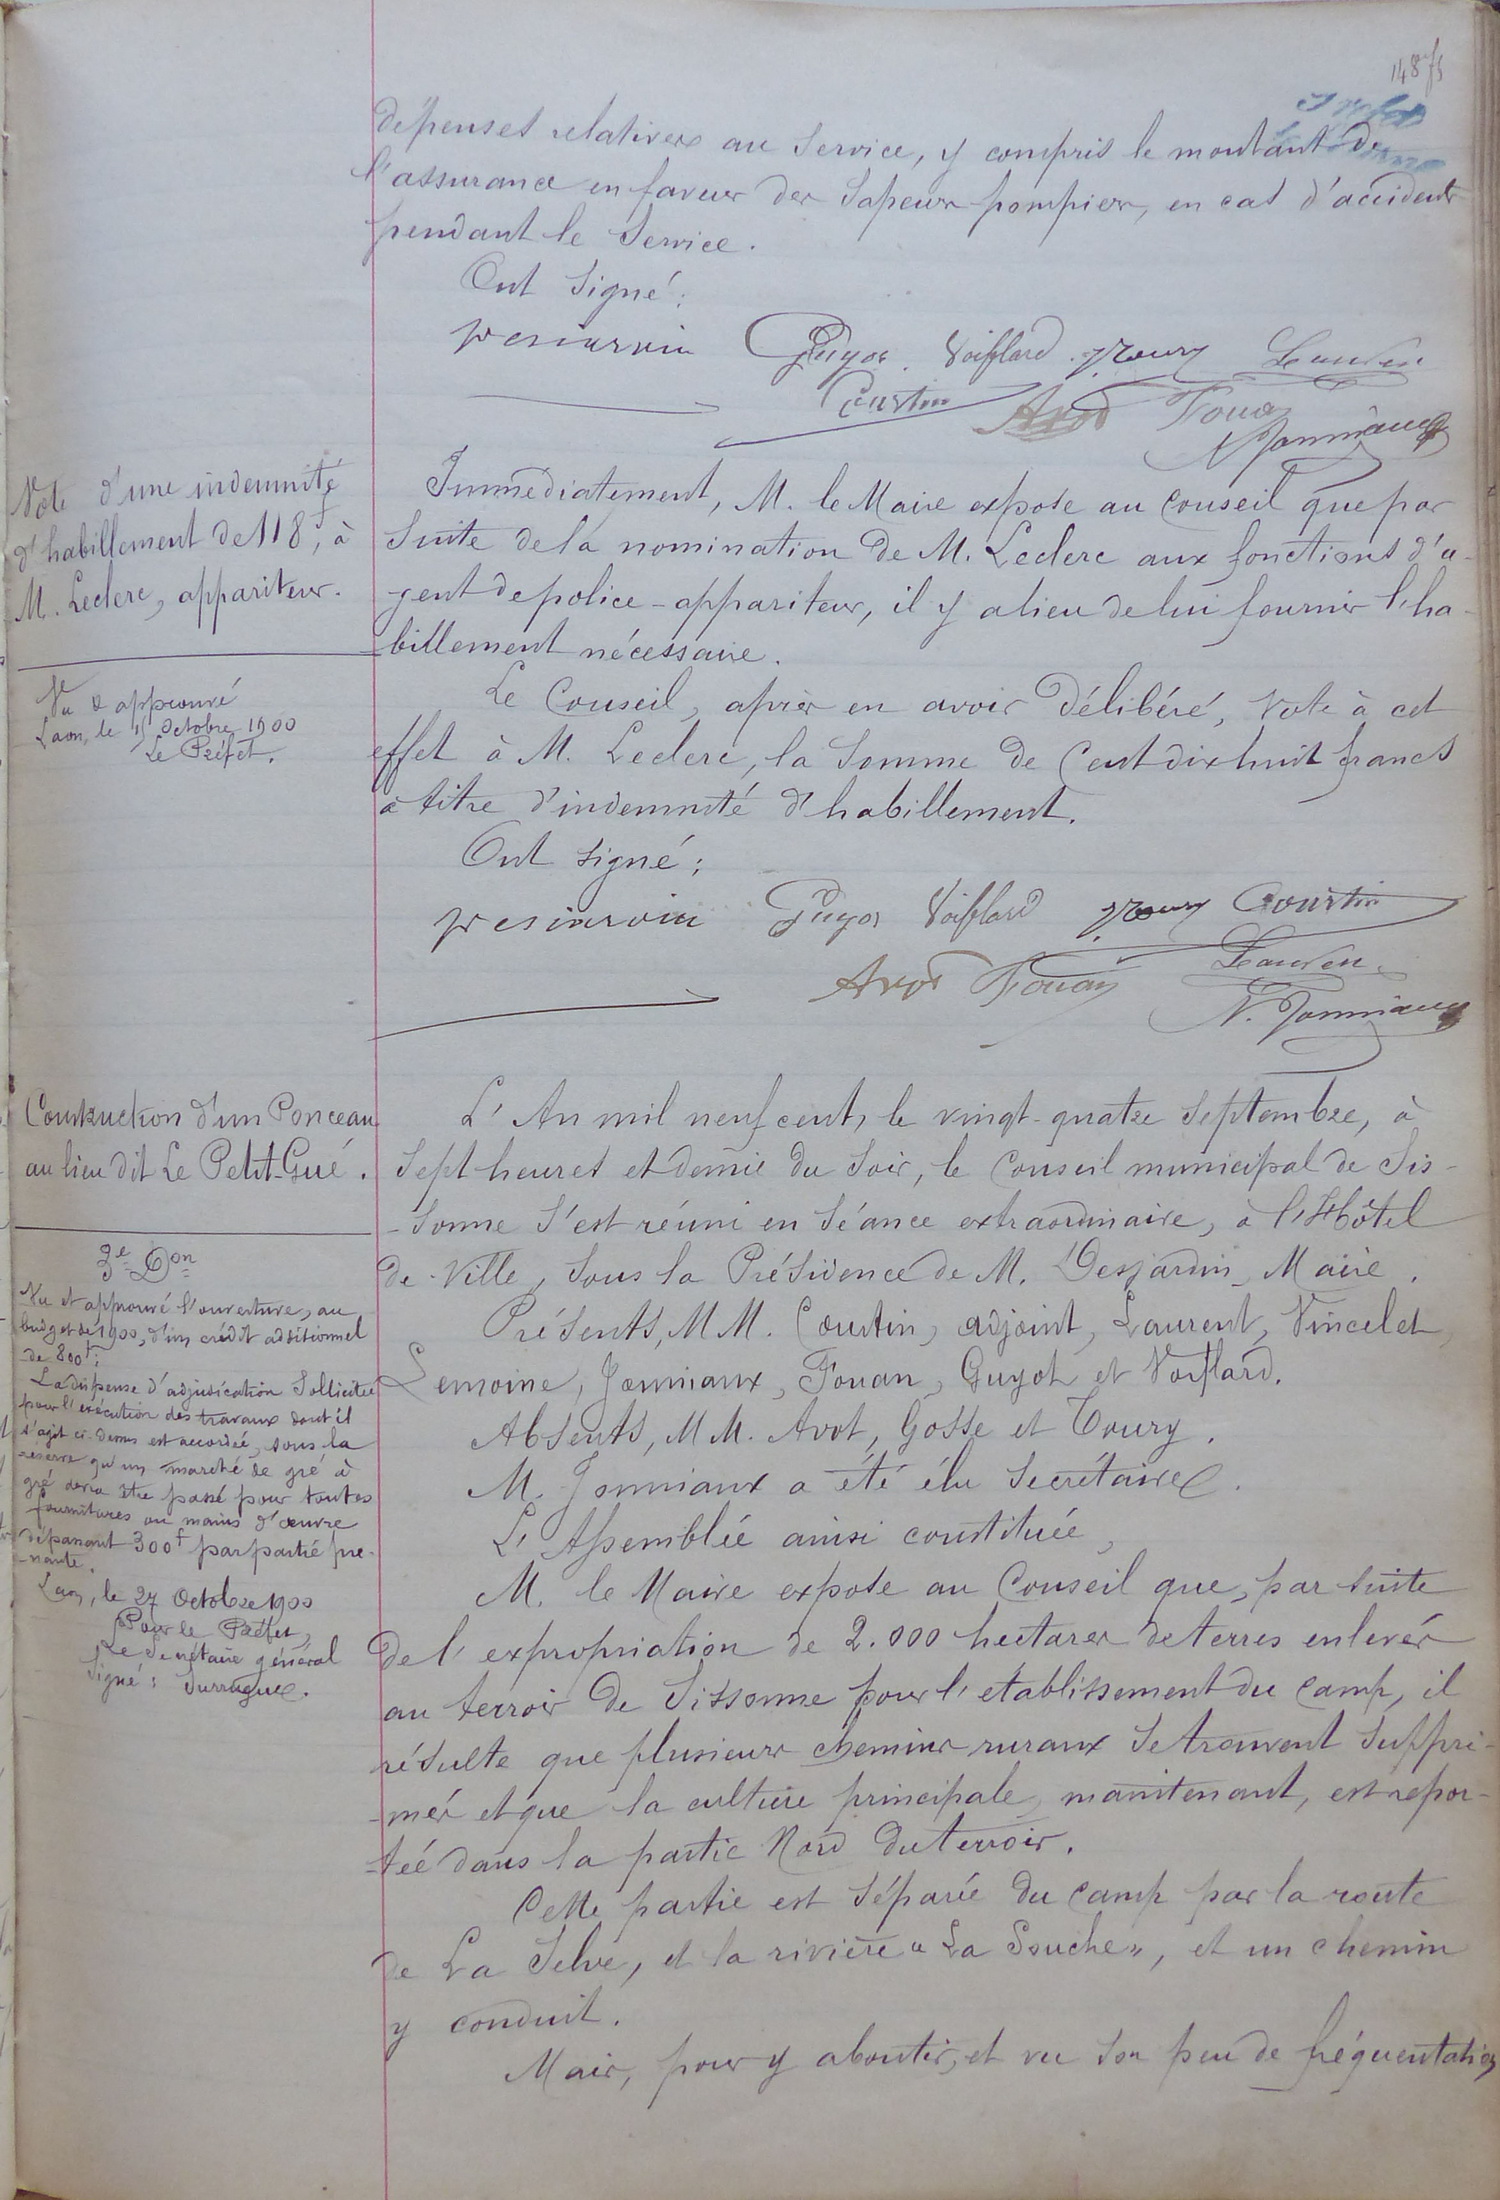 148
dépenses relatives au Service, y compris le montant de
l'assurance en faveur des Sapeurs-pompiers, en cas d'accidents
pendant le Service.
Ont Signé :
Guyot Voiflard Toury Laurent
Courtin Avot Fouan
N. Jonniaux
Vote d'une indemnité
d'habillement de 118f, à
M. Leclerc, appariteur.
Vu & approuvé
Laon, le 15 Octobre 1900
Le Préfet.
Immédiatement, M. le Maire expose au Conseil que par
Suite de la nomination de M. Leclerc aux fonctions d'a-
gent de police-appariteur, il y a lieu de lui fournir l'ha-
billement nécessaire.
Le Conseil, après en avoir Délibéré, Vote à cet
effet à M. Leclerc, la Somme de Cent dix huit francs
à titre d'indemnité d'habillement.
Ont signé ;
Guyot Voiflard Toury Courtin
Avot Fouan Laurent
N. Jonniaux
Construction d'un Ponceau
au lieu dit Le Petit-Gué.
3e Don
Vu et approuvé l'ouverture, au
budget de 1900, d'un crédit additionnel
de 800f ;
La dispense d'adjudication Sollicitée
pour l'exécution des travaux dont il
s'agit ci-dessus est accordée, sous la
réserve qu'un marché de gré à
gré devra être passé pour toutes
fournitures ou mains d'œuvre
dépassant 300f par partie pre-
-nante.
Laon, le 27 Octobre 1900
Pour le Préfet,
Le Secrétaire général
Signé : Surrugue.
L'An mil neuf cent, le vingt-quatre Septembre, à
Sept heures et demie du Soir, le Conseil municipal de Sis-
-sonne S'est réuni en Séance extraordinaire, à l'Hôtel
de Ville, Sous la Présidence de M. Desjardin, Maire.
Présents, MM. Courtin, adjoint, Laurent, Vincelet,
Lemoine, Jonniaux, Fouan, Guyot et Voiflard.
Absents, MM. Avot, Gosse et Toury.
M. Jonniaux a été élu Secrétaire.
L'Assemblée ainsi constituée,
M. le Maire expose au Conseil que, par suite
de l'expropriation de 2.000 hectares de terres enlevés
au terroir de Sissonne pour l'etablissement du Camp, il
résulte que plusieurs chemins ruraux Se trouvent Suppri-
-més et que la culture principale, maintenant, est repor-
-tée dans la partie Nord du terroir.
Cette partie est Séparée du Camp par la route
de La Selve, et la rivière « La Souche », et un chemin
y conduit.
Mais, pour y aboutir, et vu son peu de fréquentation